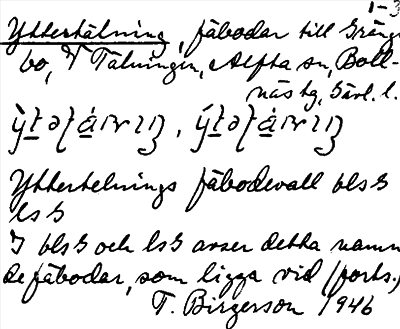 1-3
Yttertälning, fäbodar till Gränge
bo, i Tälningen, Alfta sn, Boll-
näs tg, Gävl. l.
Yttertelnings fäbodevall bls G
ls G
I bls G och ls G avser detta namn
de fäbodar, som ligga vid (forts.)
T. Birgerson 1946